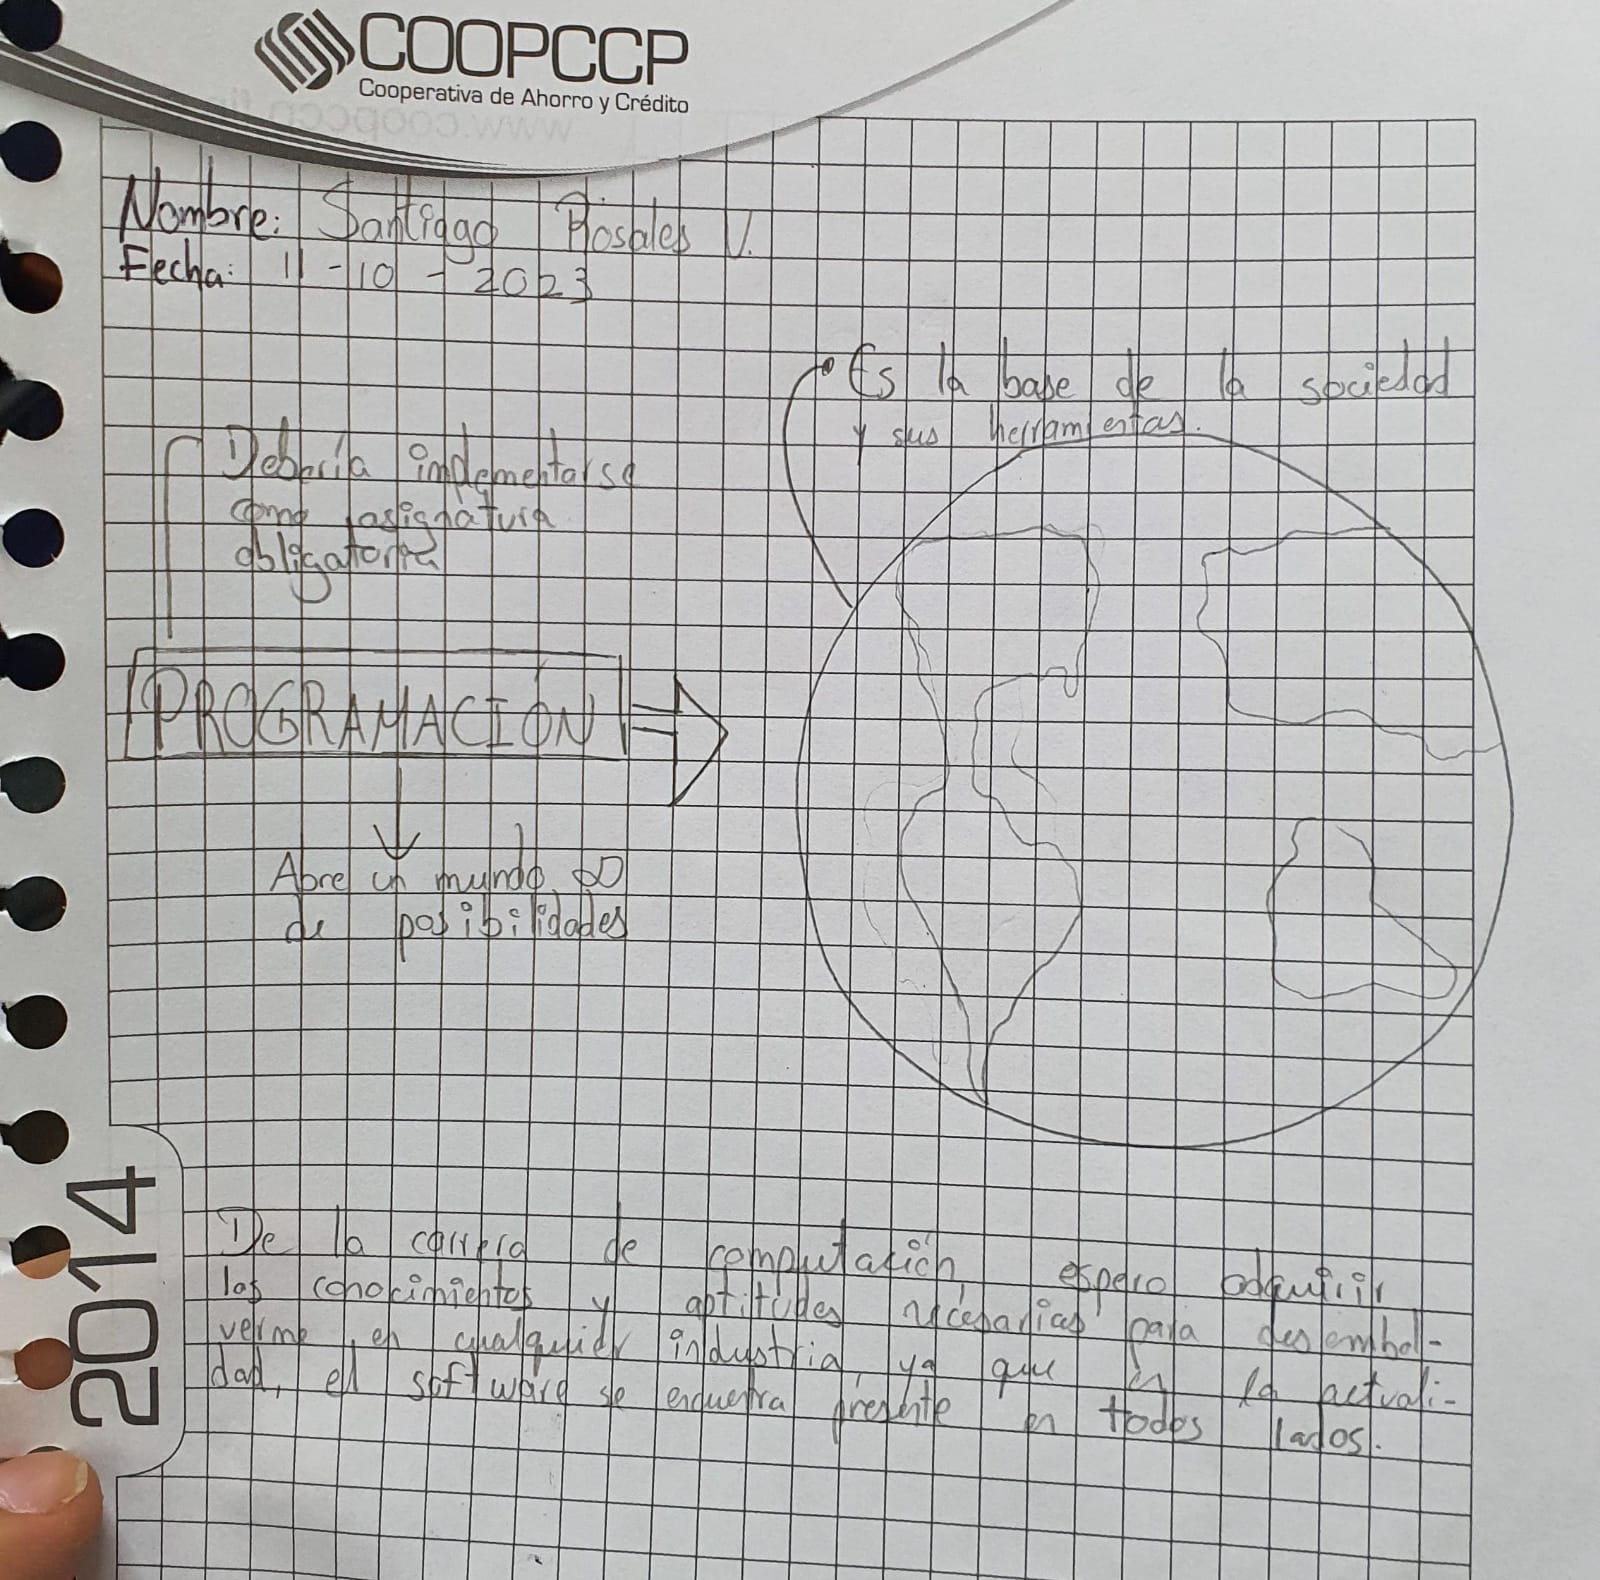 COOPCCP
Cooperativa de Ahorro y Crédito
Nombre: Santiago Rosales V.
Fecha: 11-10-2023
Es la base de la sociedad
y sus herramientas.
Debería implementarse
como asignatura
obligatoria
PROGRAMACIÓN
Abre un mundo ∞
de posibilidades
2014
De la carrera de computación, espero adquirir
los conocimientos y aptitudes necesarias para desembol-
verme en cualquier industria, ya que en la actuali-
dad, el software se encuentra presente en todos lados.